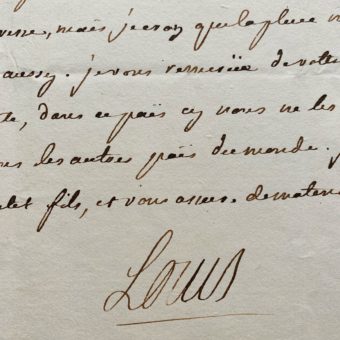 mais je croy que la pluce
aussy. je vous remercie de votre
te, dans ce païs cy nous ne les
les autres païs du monde.
fils, et vous assure de ma ten
Louis